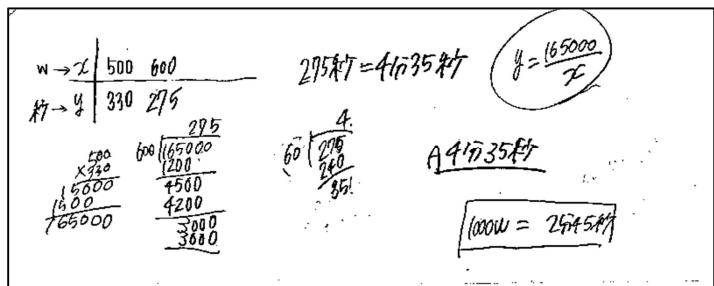 w→x 500 600
秒→y 330 275
275秒=4分35秒
y=165000/x
500
×330
15000
1500
165000
275
600)165000
1200
4500
4200
3000
3000
4.
60)275
240
35
A 4分35秒
1000w = 2分45秒